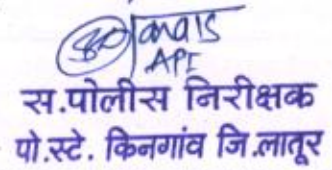 API
स.पोलीस निरीक्षक
पो.स्टे. किनगांव जि.लातूर